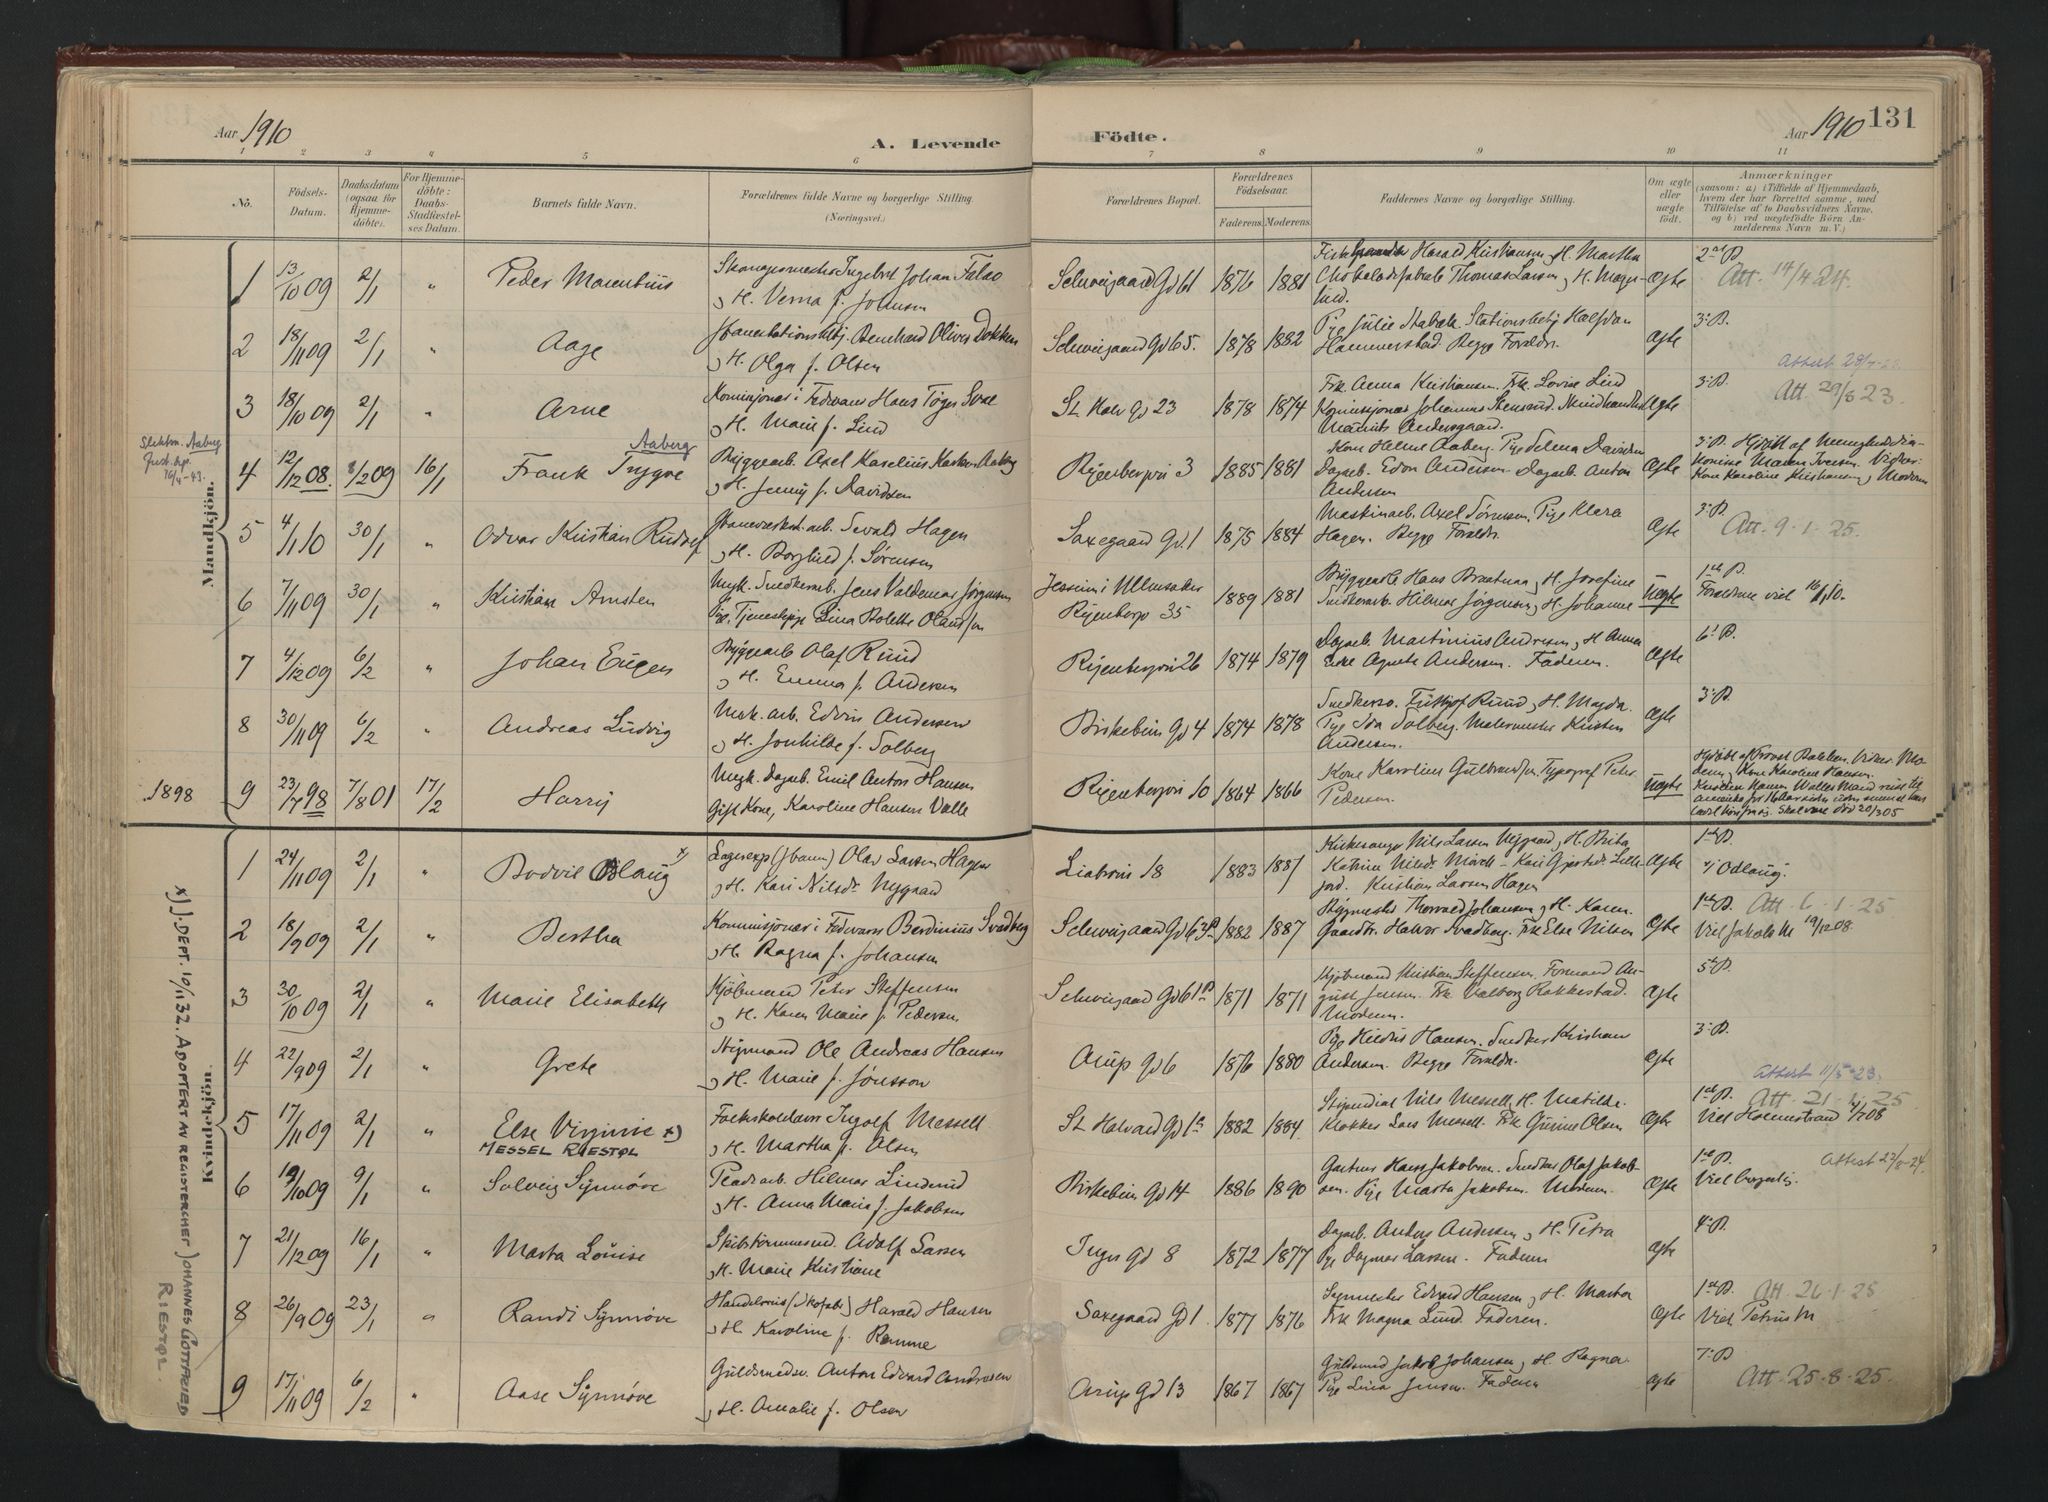 Aar 1910
A. Levende
Födte.
Aar 1910
131
1 2 3 4 5 6 7 8 9 10 11
No.
Födsels-
Datum.
Daabsdatum
(ogsaa for
Hjemme-
döbte).
For Hjemme-
döbte:
Daabs-
Stadfæstel-
ses Datum.
Barnets fulde Navn.
Forældrenes fulde Navne og borgerlige Stilling.
(Næringsvei.)
Forældrenes Bopæl.
Forældrenes
Födselsaar.
Faderens
Moderens
Faddernes Navne og borgerlige Stilling.
Om ægte
eller
uægte
födt.
Anmærkninger
(saasom: a) i Tilfælde af Hjemmedaab,
hvem der har forrettet samme, med
Tilföielse af to Daabsvidners Navne,
og b) ved uægtefödte Börn An-
melderens Navn m. V.)
Mandkjön.
1 13/10 09 2/1 " Peder Marentius
Ingebret Johan Falao
og H. Verna f. Johnsen
Schweigaard Gd 61 1876 1881
Harald Kristiansen, H. Martha
Thomas Larsen, H. Magga-
lind.
Ægte 2den B.
Att. 14/4 24.
2 18/11 09 2/1 " Aage
Bernhard Oliver Dokken
og H. Olga f. Olsen
Schweigaard Gd 65. 1878 1882
Pige Julie Stabæk. Stationsbetj Halfdan
Hammerstad. Begge Foraldr.
Ægte 3. B.
Attest 28/
3 18/10 09 2/1 " Arne
Kommisjonær i Fedevarer Hans Töger Svae
og H. Marie f. Lind
St. Halv Gd 23 1878 1874
Frk. Anna Kristiansen. Frk. Lovise Lind
Kommisjonær Johannes Stensrud.
Ægte 3. B.
Att. 29/8 23.
Slektsn. Aaberg
Just. dep.
16/4-43.
4 12/12 08. 8/2 09 16/1 Frank Trygve Aaberg
Bryggearb. Axel Karelius Karlsen Aaberg
og H. Jenny f. Davidsen
Ryenbergvei 3 1885 1881
Kone Helene Aaberg. Pige Selena Davidsen
Dagarb. Edon Andersen. Dagarb. Anton
Andersen
Ægte 3. B. Hjdöbt af
Maren Iversen. Vidner:
Kone Karoline Kristiansen, Moderen
5 4/1 10 30/1 " Odvar Kristian Rudolf
Sevald Hagen
og H. Borghild f. Sørensen
Saxegaard Gd. 1 1875 1884
Maskinarb. Axel Sörensen. Pige Klara
Hagen. Begge Foraldr.
Ægte 3. B.
Att. 9.1.25.
6 7/11 09 30/1 " Kristian Arnsten
Ungk. Snedkerarb. Jens Valdemar Jörgensen
Pige, Tjenestepige Lina Bolette Olausen
Jessheim i Ullensaker
Ryenbergv 35 1889 1881
Bryggearb Hans Braatnaa og H. Josefine
Snedkerarb. Hilmar Jörgensen og H. Johanne
Uægte 1ste B.
Foraldrene viet 16/1 10.
7 4/12 09 6/2 " Johan Eugen
Bryggearb Olaf Ruud
og H. Emma f. Andersen
Ryenbergvei 26 1874 1879
Dagarb. Martinius Andresen og H. Anna
Enke Agnete Andersen. Faderen.
Ægte 6te B.
8 30/11 09 6/2 " Andreas Ludvig
Edvin Andersen
og H. Jonhilde f. Solberg
Birkebein Gd 4 1874 1878
Fritjof Ruud og H. Magda.
Pige Ida Solberg. Malermester Kristen
Andersen.
Ægte 3. B.
1898
9 23/7 98 7/8 01 17/2 Harry
Ungk. Dagarb. Emil Anton Hansen
Gift Kone, Karoline Hansen Valle
Ryenbergvei 10 1864 1866
Kone Karoline Gulbrandsen. Typograf Peter
Pedersen.
Uægte Hjdöbt af Provst Vidner: Mo-
deren og Kone Karoline Hansen.
Skal være död 20/3 05
Kvindekjön.
1 24/11 09 2/1 " Bodvil Oddlaug x)
Lagerexp (Jbanen) Olav Larsen Hagen
og H. Kari Nilsdr Nygaard
Liabrvei 18 1883 1887
Nils Larsen Nygaard, H. Brita
Kristian Larsen Hagen
Ægte 1ste B.
x) Odlaug.
2 18/9 09 2/1 " Bertha
Kommisjonær i Fedevarer Berdinius Svadberg
og H. Ragna f. Johansen
Schweigaard Gd 63 1882 1887
Thorvald Johansen og H. Karen.
Gaardbr. Halvor Svadberg. Frk Else Nilsen
Ægte 1ste B. Att. 6.1.25
Viet Jakobs M 19/12 08.
3 30/10 09 2/1 " Marie Elisabeth
Kjöbmand Peter Steffensen
og H. Karen Marie f. Pedersen
Schweigaard Gd 61 1871 1871
Kjöbmand Kristian Steffensen. Formand Au-
gust Jensen. Frk Valborg Rakkestad.
Moderen.
Ægte 5te B.
4 22/9 09 2/1 " Grete
Ole Andreas Hansen
og H. Marie f. Jönsson
Arup Gd 6 1876 1880
Hansen. Snedker Kristian
Andersen. Begge Foraldr.
Ægte 3. B.
Attest 11/5-23.
5 17/11 09 2/1 " Else Virginie x)
MESSEL RIESTØL
Ingolf Messell
og H. Martha f. Olsen
St Halvard Gd 1a 1882 1884.
Nils Messell, H. Matilde.
Klokker Lars Messell. Frk Gurine Olsen
Ægte 1ste B. Att. 21.1.25
Viet Holmestrand 08
6 19/10 09 9/1 " Solveig Synnöve
Hilmar Lindrud
og H. Anna Marie f. Jakobsen
Birkebein Gd 14 1886 1890
Gartner Hans Jakobsen. Snedker Olaf Jakob-
sen. Pige Marta Jakobsen. Moderen.
Ægte 1ste B. Attest 22/8-24.
Viet borgerlig.
7 21/12 09 16/1 " Marta Louise
Skibstömmermd. Adolf Larsen
og H. Marie Kristiane
Inges Gd 8 1872 1877
Dagarb. Anders Andersen og H. Petra
Pige Dagmar Larsen. Faderen
Ægte 4de B.
8 26/9 09 23/1 " Randi Synnöve
Handelsreis (Skofabr) Harald Hansen
og H. Karoline f. Ramme
Saxegaard Gd 1 1877 1876
Edvard Hansen og H. Marta
Frk Magna Lund. Faderen.
Ægte 1ste B. Att. 26.1.25
Viet Petrus M
9 17/11 09 6/2 " Aase Synnöve
Guldsmedsv. Anton Edvard Andresen
og H. Amalie f. Olsen
Arup Gd 13 1867 1867
Guldsmed Jakob Johansen og H. Ragna.
Pige Lina Jensen. Faderen
Ægte 7. B
Att. 25.8.25.
x) J.DEPT. 10/11 32. ADOPTERT AV REGISTERCHEF JOHANNES GOTTFRIED
RIESTØL